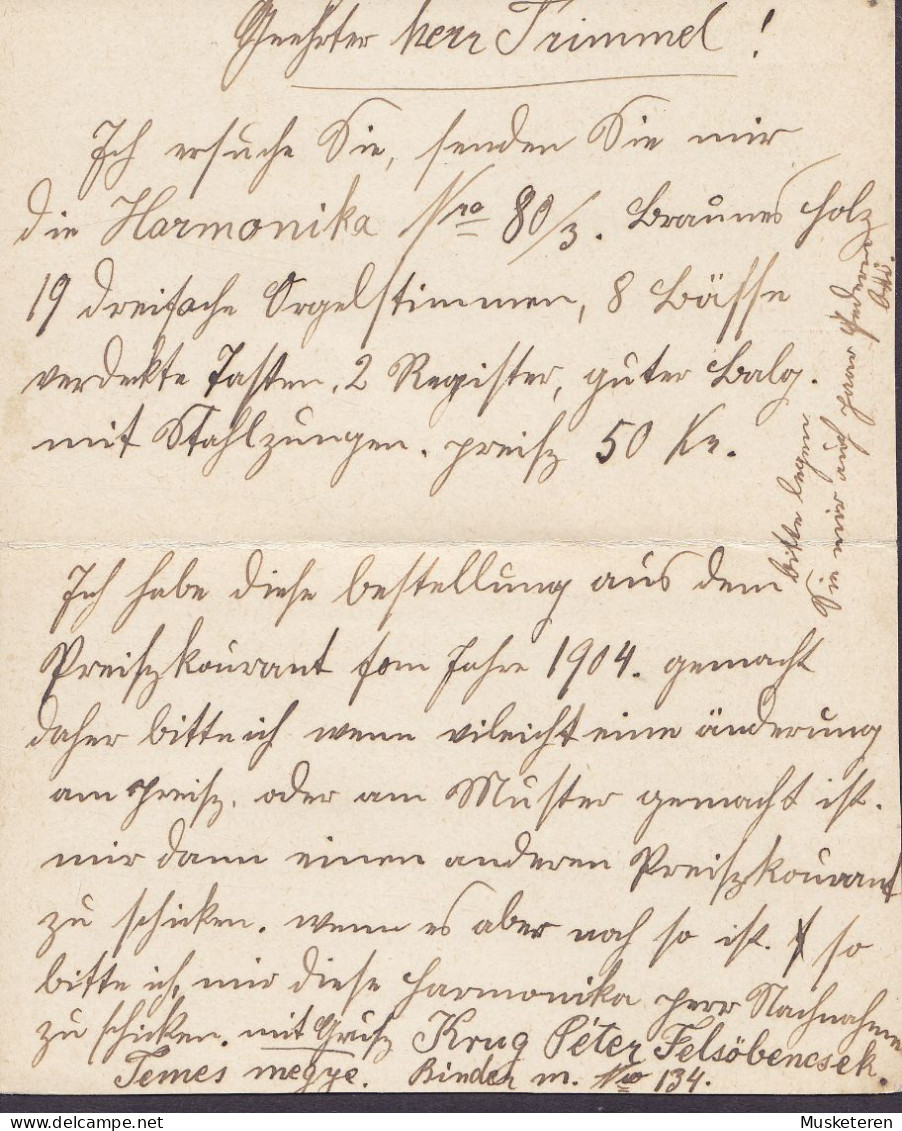 Geehrter Herr Trimmel!
Ich ersuche Sie, senden Sie mir
die Harmonika Nro 80/3. Braunes Holz
19 dreifache Orgelstimmen, 8 Bässe
verdekte Tasten, 2 Register, guter Balg.
mit Stahlzungen. preisz 50 Kr.
Ich habe diese bestellung aus dem
Preiszkourant fom Jahre 1904. gemacht
daher bitte ich wenn vileicht eine änderung
am preisz. oder am Muster gemacht ist.
mir dann einen anderen Preiszkourant
zu schicken. wenn es aber noch so ist. so
bitte ich, mir diese Harmonika perr Nachnahme
zu schicken. mit Grusz Krug Péter Felsöbencsek.
Temes megye. Binder m. No 134.
bitte legen
sie mir auch paar
Musketeren